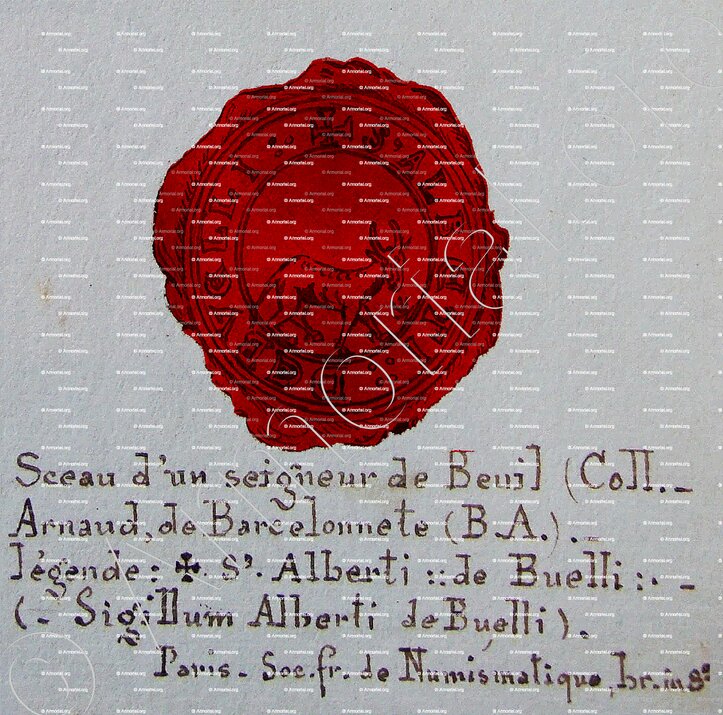 Sceau d'un seigneur de Beuil (Coll. _
Arnaud, de Barcelonnete (B.A.). _
légende: ✠ S'. Alberti : de Buelli :. _
(_ Sigillum Alberti de Buelli )_
Paris. Soc. fr. de Numismatique, br. in 8°